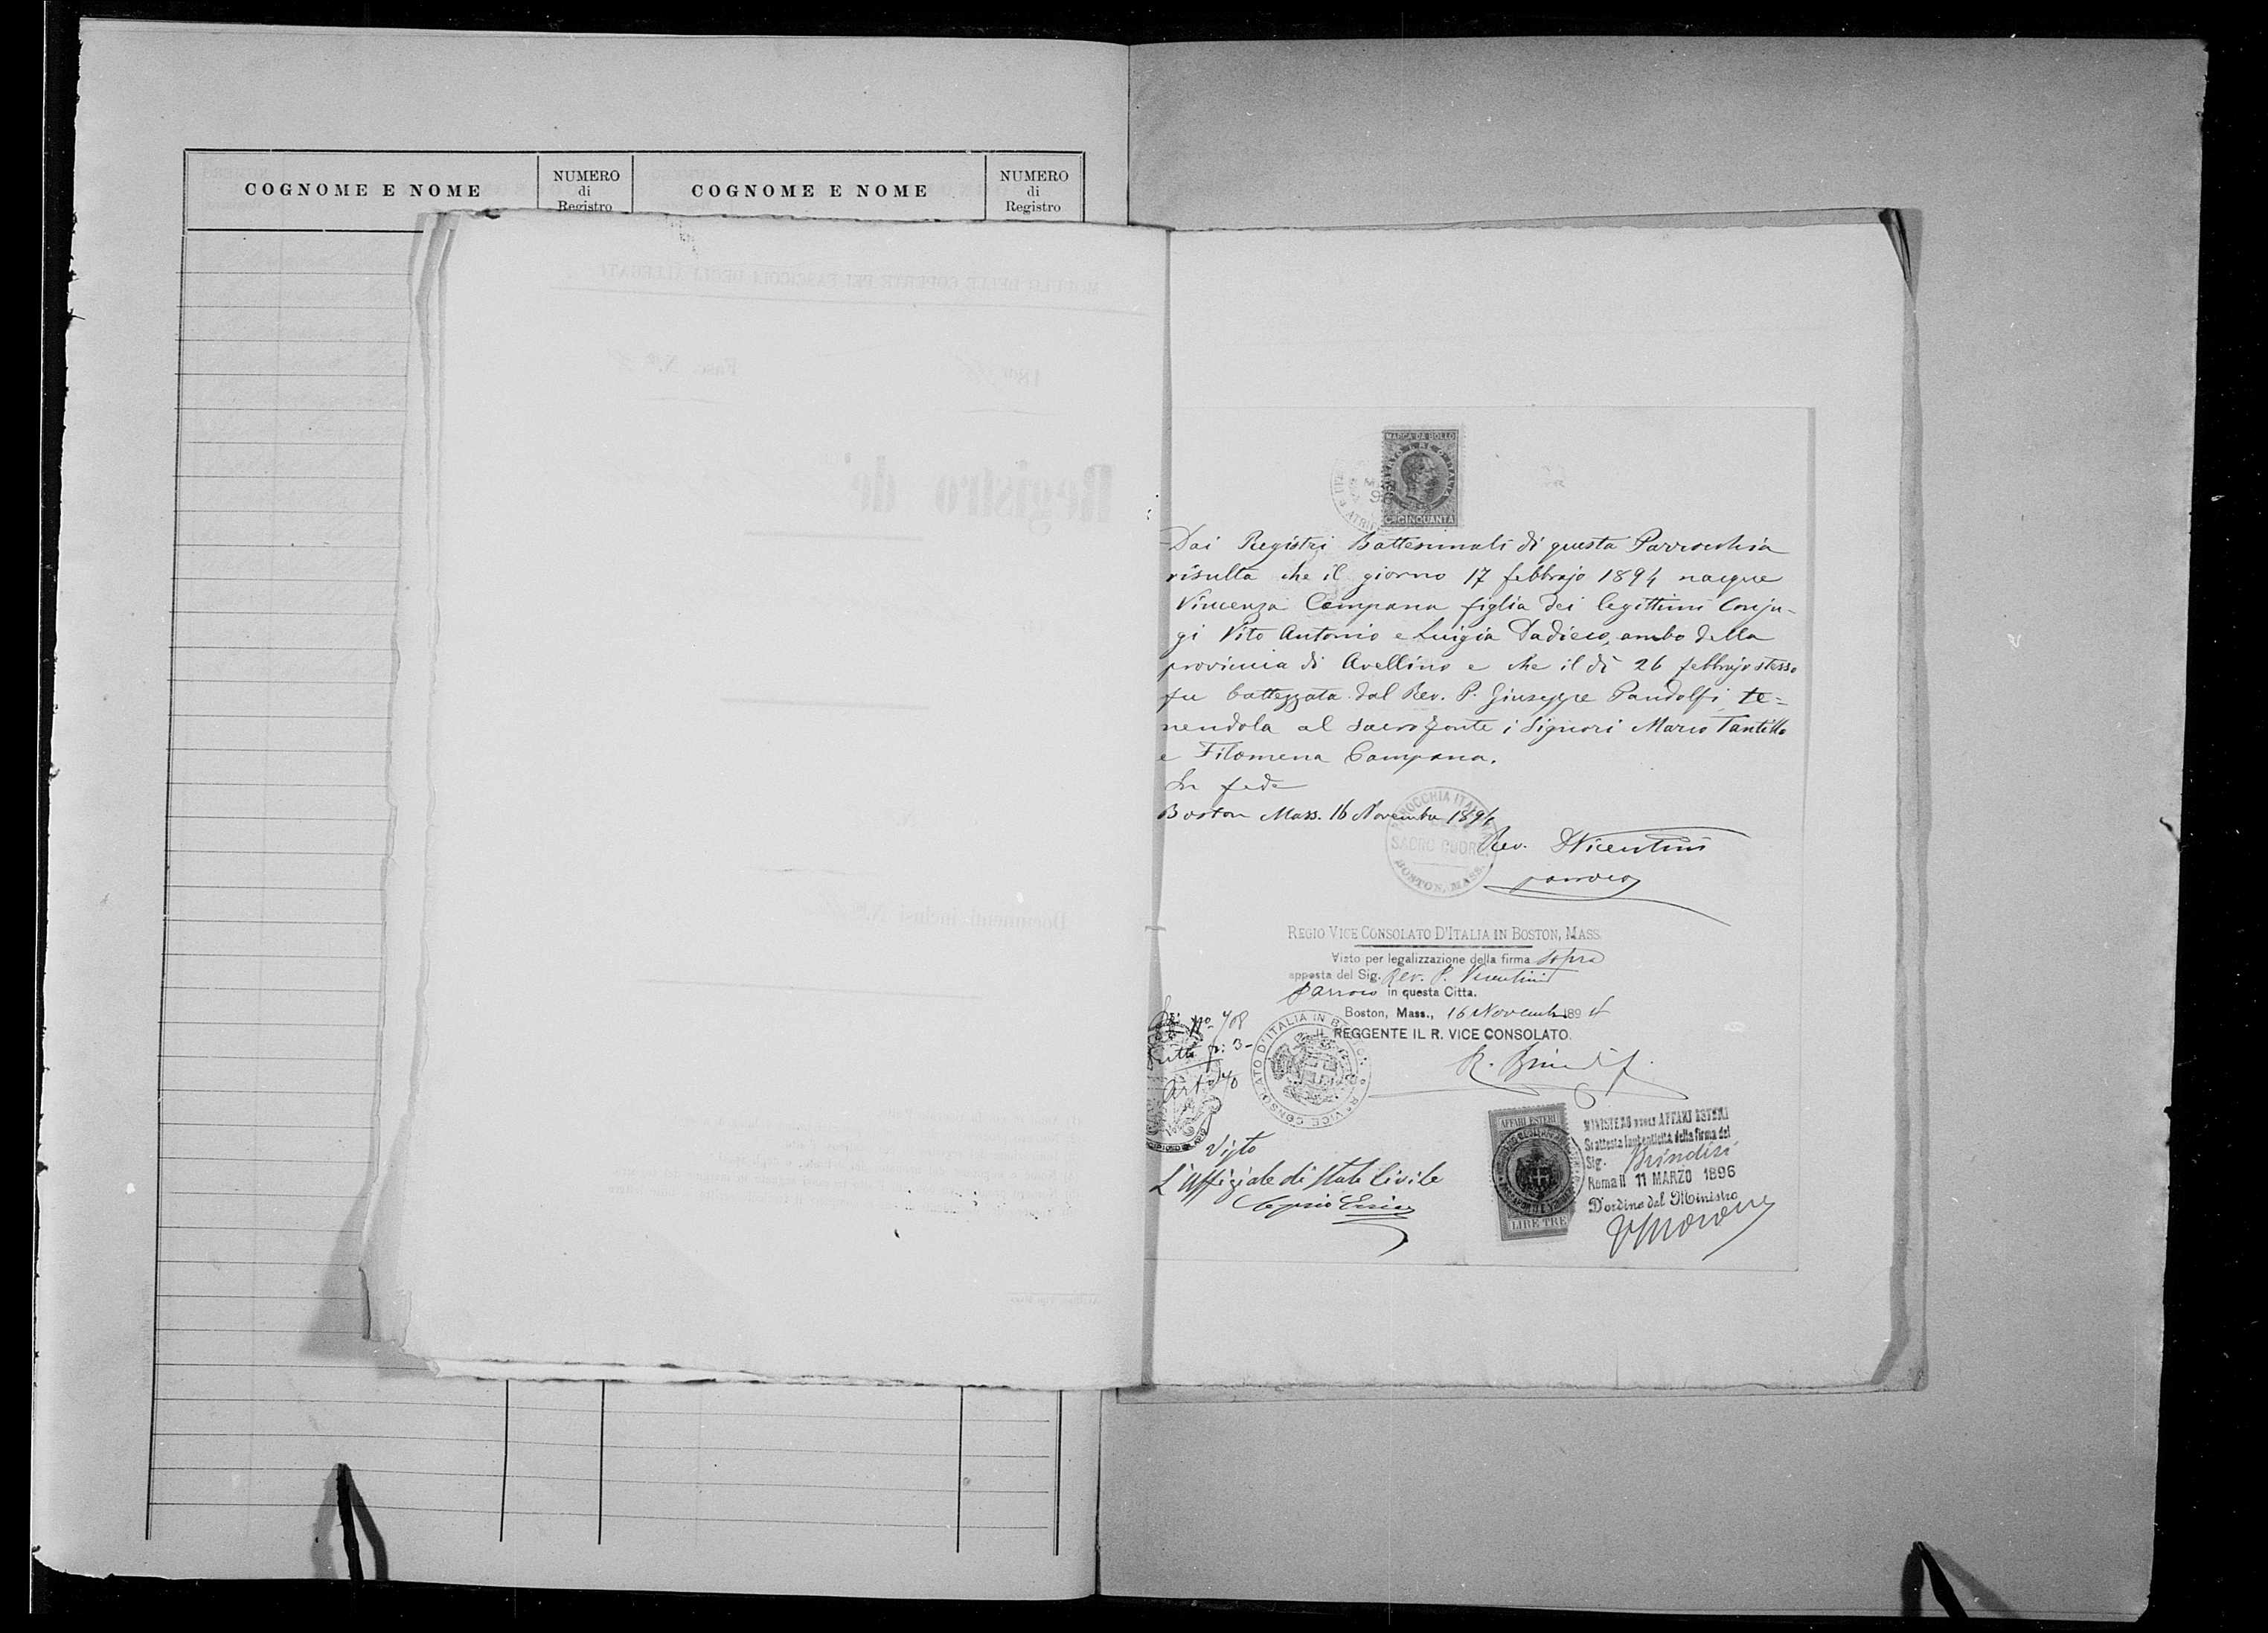 COGNOME E NOME
NUMERO
di
Registro
COGNOME E NOME
NUMERO
di
Registro
MARCA DA BOLLO
Cmi CINQUANTA
Dai Registri Battesimali di questa Parrocchia
risulta che il giorno 17 febbrajo 1894 nacque
Vincenza Campana figlia dei legittimi Conju-
gi Vito Antonio e Luigia Dadieco, ambo della
provincia di Avellino e che il dì 26 febbrajo stesso
fu battezzata dal Rev. P. Giuseppe Pandolfi, te=
nendola al sacro fonte i Signori Marco Tantillo
e Filomena Campana.
In fede
Boston Mass. 16 Novembre 1894
PARROCCHIA ITALIANA
SACRO CUORE
BOSTON, MASS.
Rev. Vicentini
parroco
REGIO VICE CONSOLATO D'ITALIA IN BOSTON, MASS.
Visto per legalizzazione della firma sopra
apposta del Sig. Rev. P. Vicentini
Parroco in questa Citta.
Boston, Mass., 16 Novemb 1894
IL REGGENTE IL R. VICE CONSOLATO.
R. Brindisi
No 708
fr: 3-
Art 70
R. VICE CONSOLATO D'ITALIA IN BOSTON
Visto
L'Uffiziale di Stato Civile
AFFARI ESTERI
LIRE TRE
MINISTERO DEGLI AFFARI ESTERI
Si attesta l'autenticità della firma del
Sig. Brindisi
Roma il 11 MARZO 1896
D'ordine del Ministro